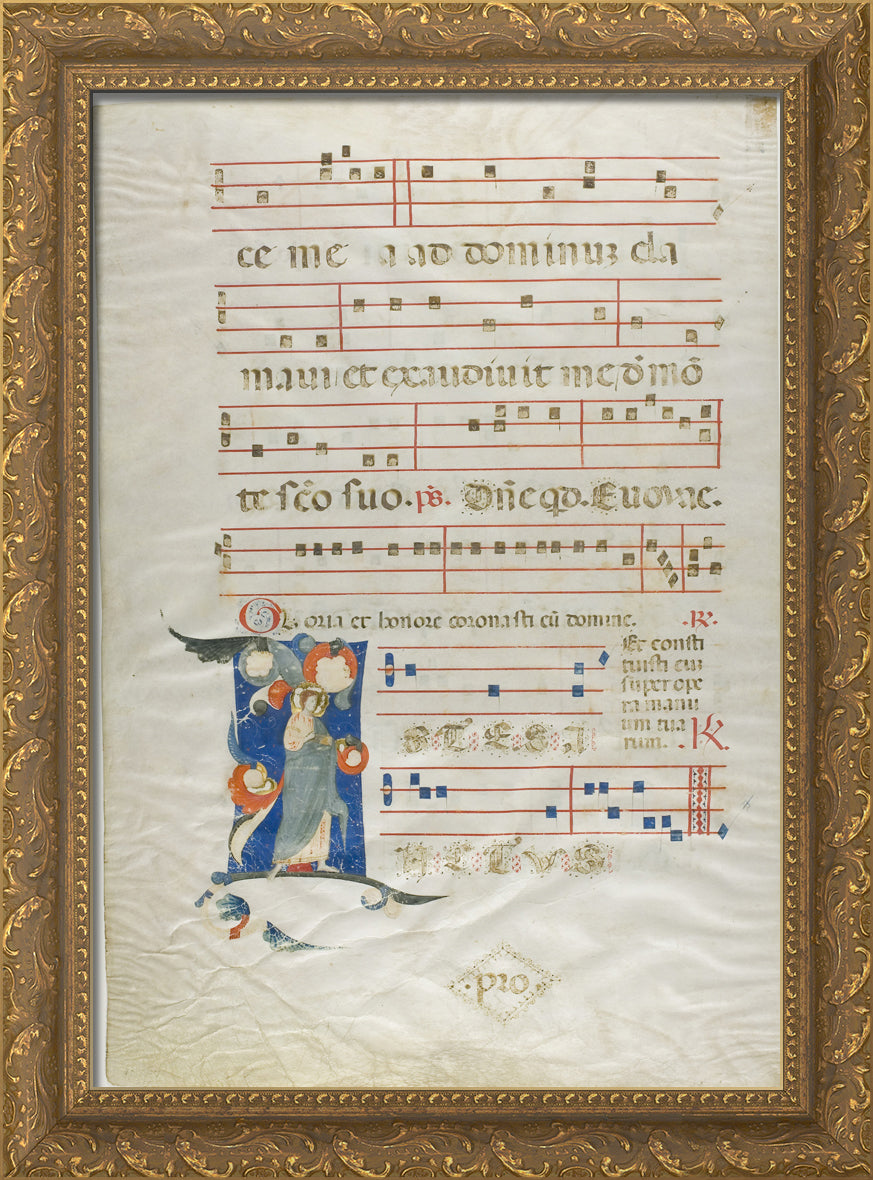 ce me a ad dominuꝫ cla
maui et exaudiuit me d̄ mō
te sc̄o suo. ps̄. Dn̄e qd. Euovae.
Gloria et honore coronasti eū domine. .R.
Et consti
tuisti eum
super ope
ra manu
um tua
rum. .R.
B E E S I
H E T V S
.pro.